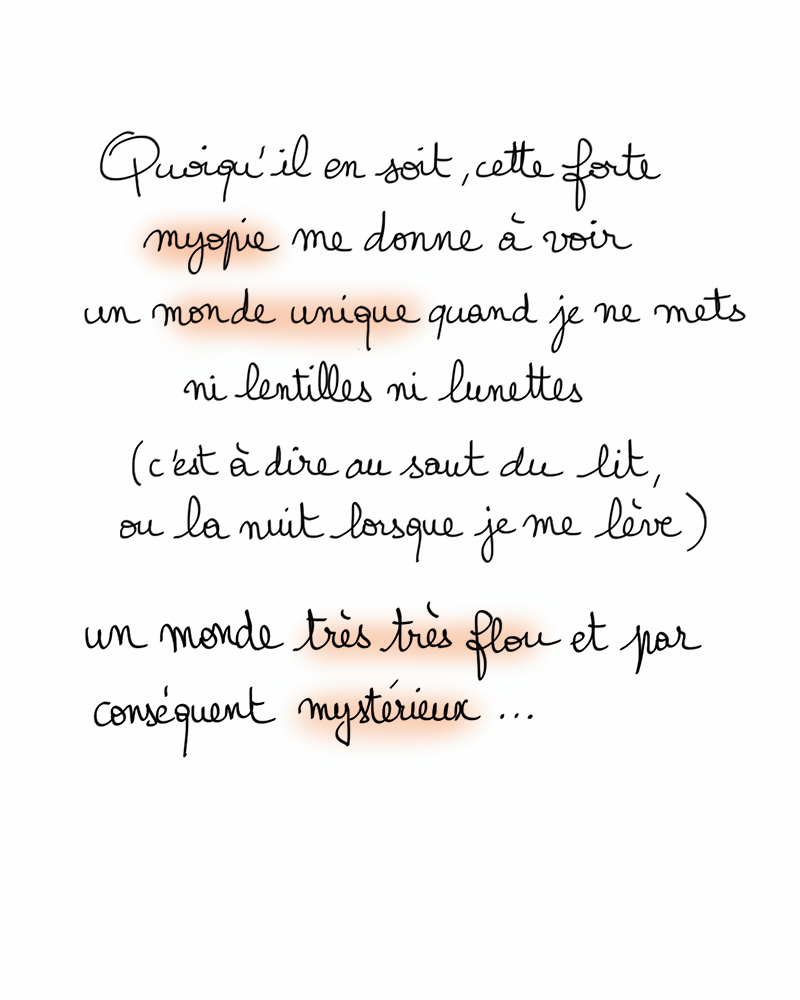 Quoiqu'il en soit, cette forte
myopie me donne à voir
un monde unique quand je ne mets
ni lentilles ni lunettes
(c'est à dire au saut du lit,
ou la nuit lorsque je me lève)
un monde très très flou et par
conséquent mystérieux ...